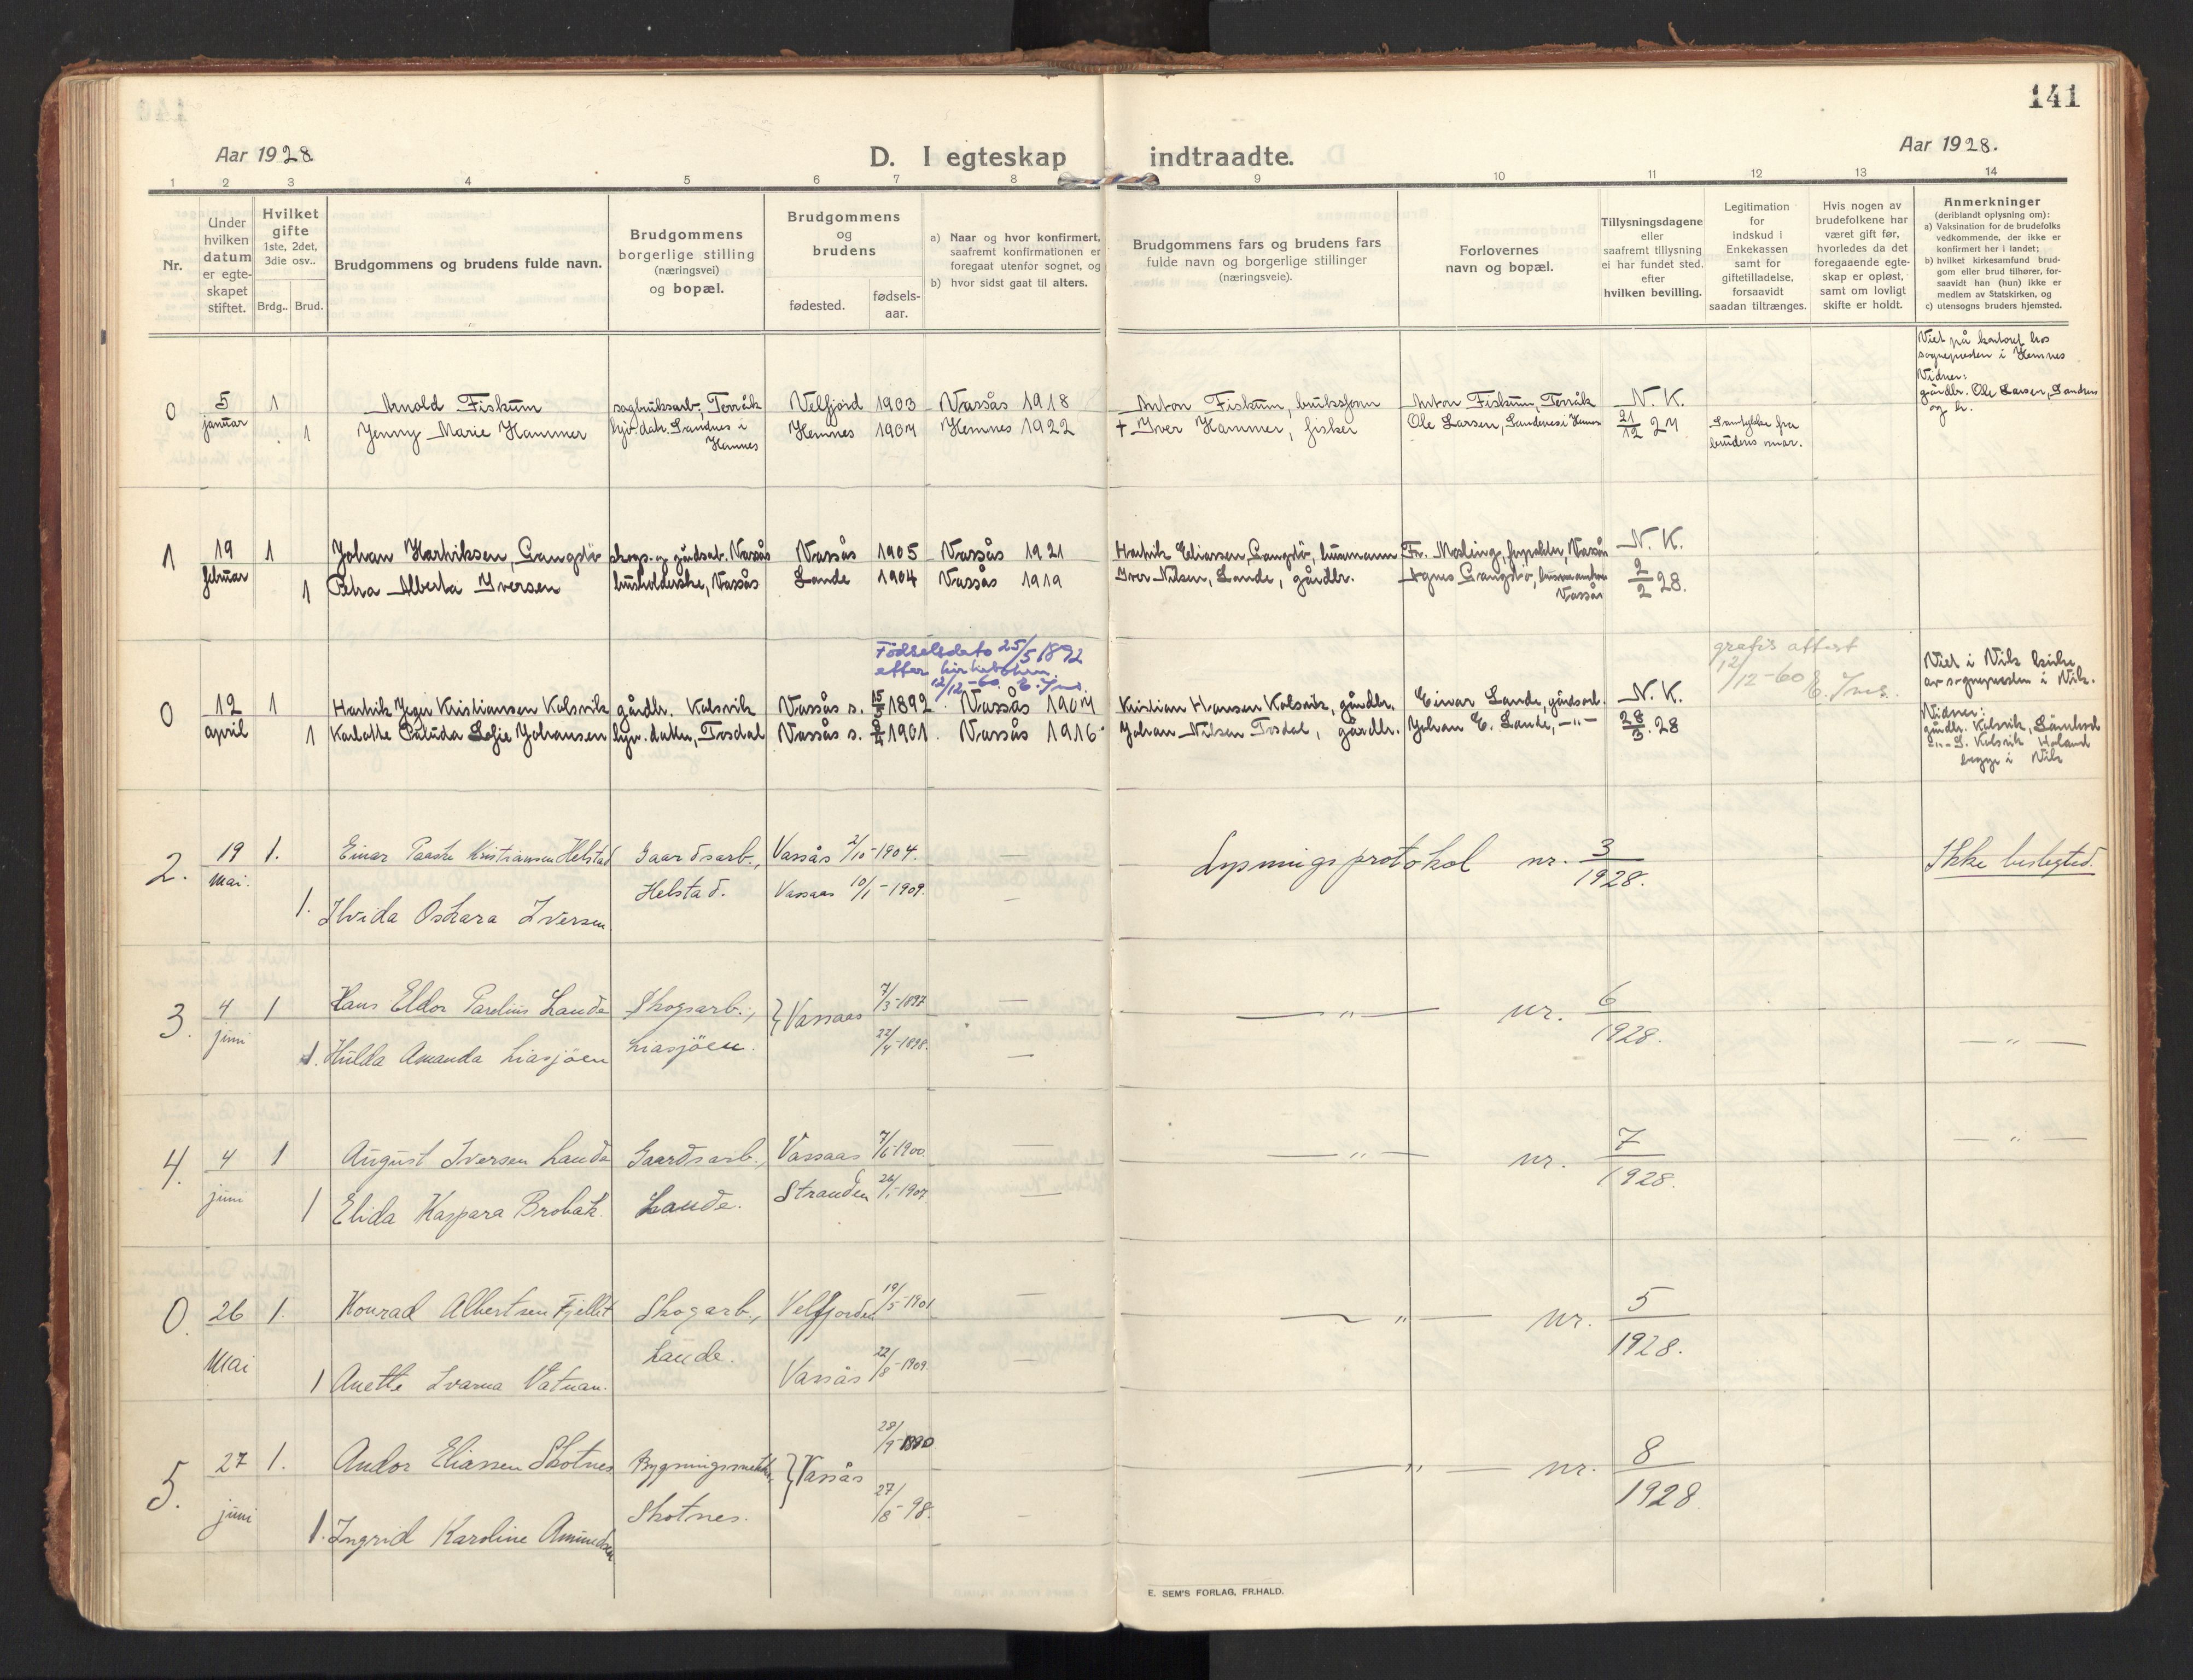 141
Aar 1928.
D. I egteskap indtraadte.
Aar 1928.
1 2 3 4 5 6 7 8 9 10 11 12 13 14
Nr.
Under
hvilken
datum
er egte-
skapet
stiftet.
Hvilket
gifte
1ste, 2det,
3die osv..
Brdg.. Brud.
Brudgommens og brudens fulde navn.
Brudgommens
borgerlige stilling
(næringsvei)
og bopæl.
Brudgommens
og
brudens
fødested.
fødsels-
aar.
a) Naar og hvor konfirmert,
saafremt konfirmationen er
foregaat utenfor sognet, og
b) hvor sidst gaat til alters.
Brudgommens fars og brudens fars
fulde navn og borgerlige stillinger
(næringsveie).
Forlovernes
navn og bopæl.
Tillysningsdagene
eller
saafremt tillysning
ei har fundet sted.
efter
hvilken bevilling.
Legitimation
for
indskud i
Enkekassen
samt for
giftetilladelse,
forsaavidt
saadan tiltrænges.
Hvis nogen av
brudefolkene har
været gift før,
hvorledes da det
foregaaende egte-
skap er opløst,
samt om lovligt
skifte er holdt.
Anmerkninger
(deriblandt oplysning om):
a) Vaksination for de brudefolks
vedkommende, der ikke er
konfirmert her i landet;
b) hvilket kirkesamfund brud-
gom eller brud tilhører, for-
saavidt han (hun) ikke er
medlem av Statskirken, og
c) utensogns bruders hjemsted.
Viet på kontoret hos
sognepresten i Hemnes
Vidner:
gårdbr. Ole Larsen, Sandnes
og h.
0 5 januar 1 Arnold Fiskum sagbruksarb., Terråk Velfjord 1903 Vassås 1918 Anton Fiskum, bruksform Anton Fiskum, Terråk N. K.
1 Jenny Marie Hammer hjv. datr. Sandnes i Hemnes Hemnes 1907 Hemnes 1922 + Iver Hammer, fisker Ole Larsen, Sandnes i Hemnes 21/12 27 Samtykke fra
brudens mor.
1 19 februar 1 Johan Hartviksen, Langdö skogs- og gårdsarb. Vassås Vassås 1905 Vassås 1921 Hartvik Eliassen, Langdö, husmann Fr. Mosling, Vassås N. K.
1 Petra Alberta Iversen husholderske, Vassås Lande 1904 Vassås 1919 Iver Nilsen, Lande, gårdbr. Agnes Langdö, Vassås 2/2 28.
Födselsdato 25/5 1892
efter kirkeboken
12/12-60.
gratis attest
12/12-60
Viet i Vik kirke
av sognepresten i Vik.
0 12 april 1 Hartvik Jeger Kristiansen Kolsvik gårdbr. Kolsvik Vassås s. 15/5 1892 Vassås 1907 Kristian Hansen Kolsvik, gårdbr. Einar Lande, gårdsarb. N. K.
1 Karlotte Paluda Sofie Johansen hjv. datter, Tosdal Vassås s. 1901 Vassås 1916 Johan Nilsen Tosdal, gårdbr. Johan E. Lande, -"- 28/3. 28
Vidner:
gårdbr. Kolsvik,
-"- S. Kolsvik Holand
begge i Vik
2. 19 Mai. 1. Einar Paaske Kristiansen Helstad Gaardsarb., Vassås 2/10-1904. — Lysningsprotokol nr. 3/1928. Ikke beslegted.
1. Ilvida Oskara Iversen Helstad. Vassaas 10/1-1909. —
3. 4 juni 1 Hans Eldor Parelius Lande Skogsarb., } Vassaas 7/3-1897 — —"— nr. 6/1928.
1. Hulda Amanda Liasjöen Liasjöen. 22/4-1898. — —"—
4. 4 juni 1 August Iversen Lande Gaardsarb., Vassaas 7/6-1900 — —"— nr. 7/1928. —"—
1 Elida Kaspara Brobak. Lande. Stranden 26/1-1907. —
0. 26 Mai 1. Konrad Albertsen Fjellet Skogarb., Velfjorden 19/5-1901 — —"— nr. 5/1928.
1 Anette Ivarna Vatnan. Lande. Vassås 22/8-1909. —
5. 27 juni 1. Andor Eliassen Skotnes Bygningssnekker } Vassås 28/9-1890 —"— nr. 8/1928.
1. Ingrid Karoline Amundsen Skotnes. 27/8-98. —
E. SEM'S FORLAG, FR.HALD.